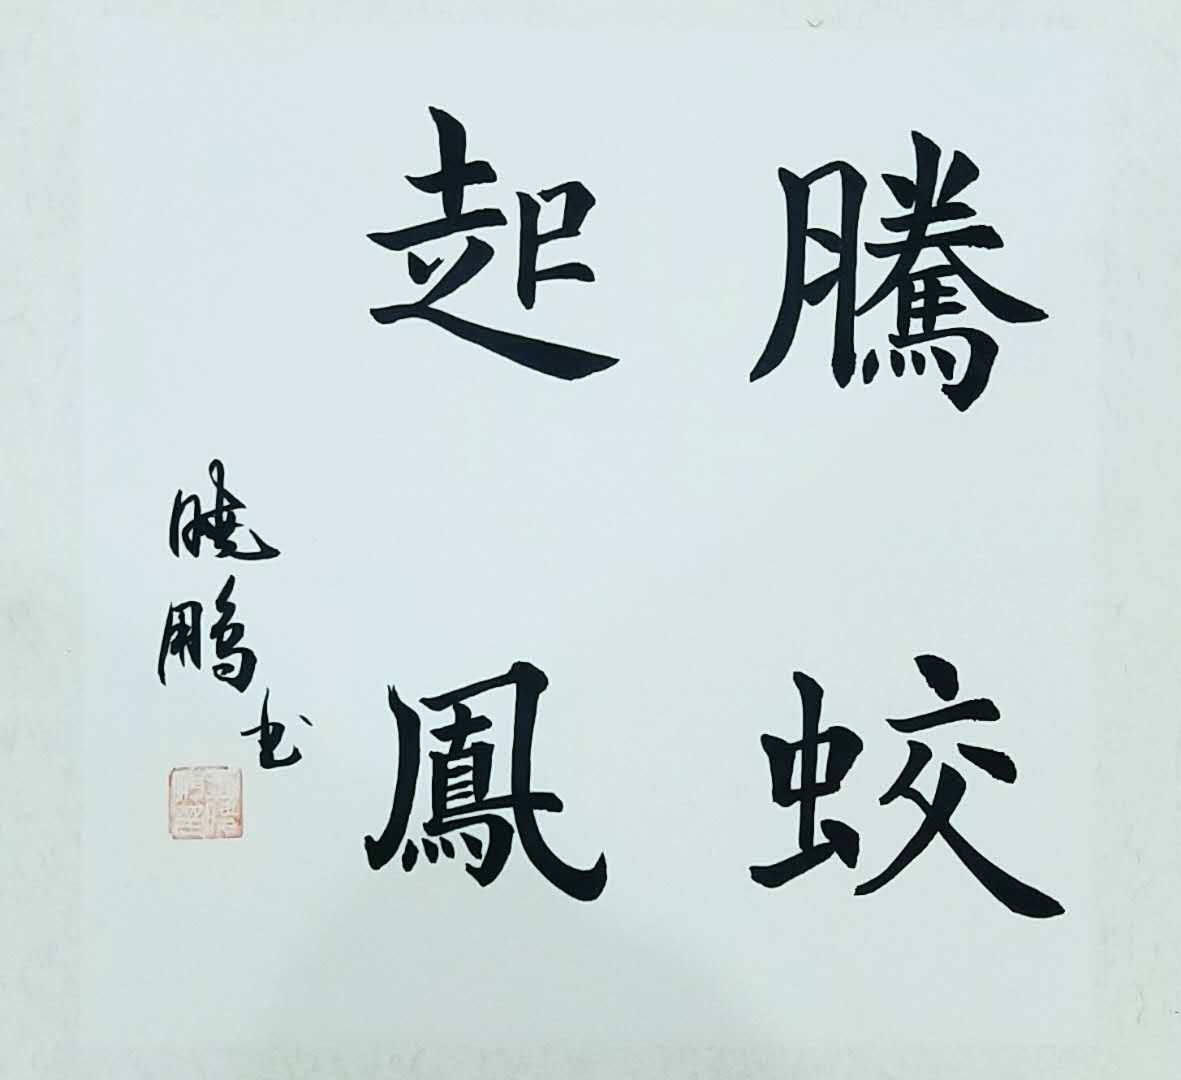 騰蛟
起鳳
曉鵬书